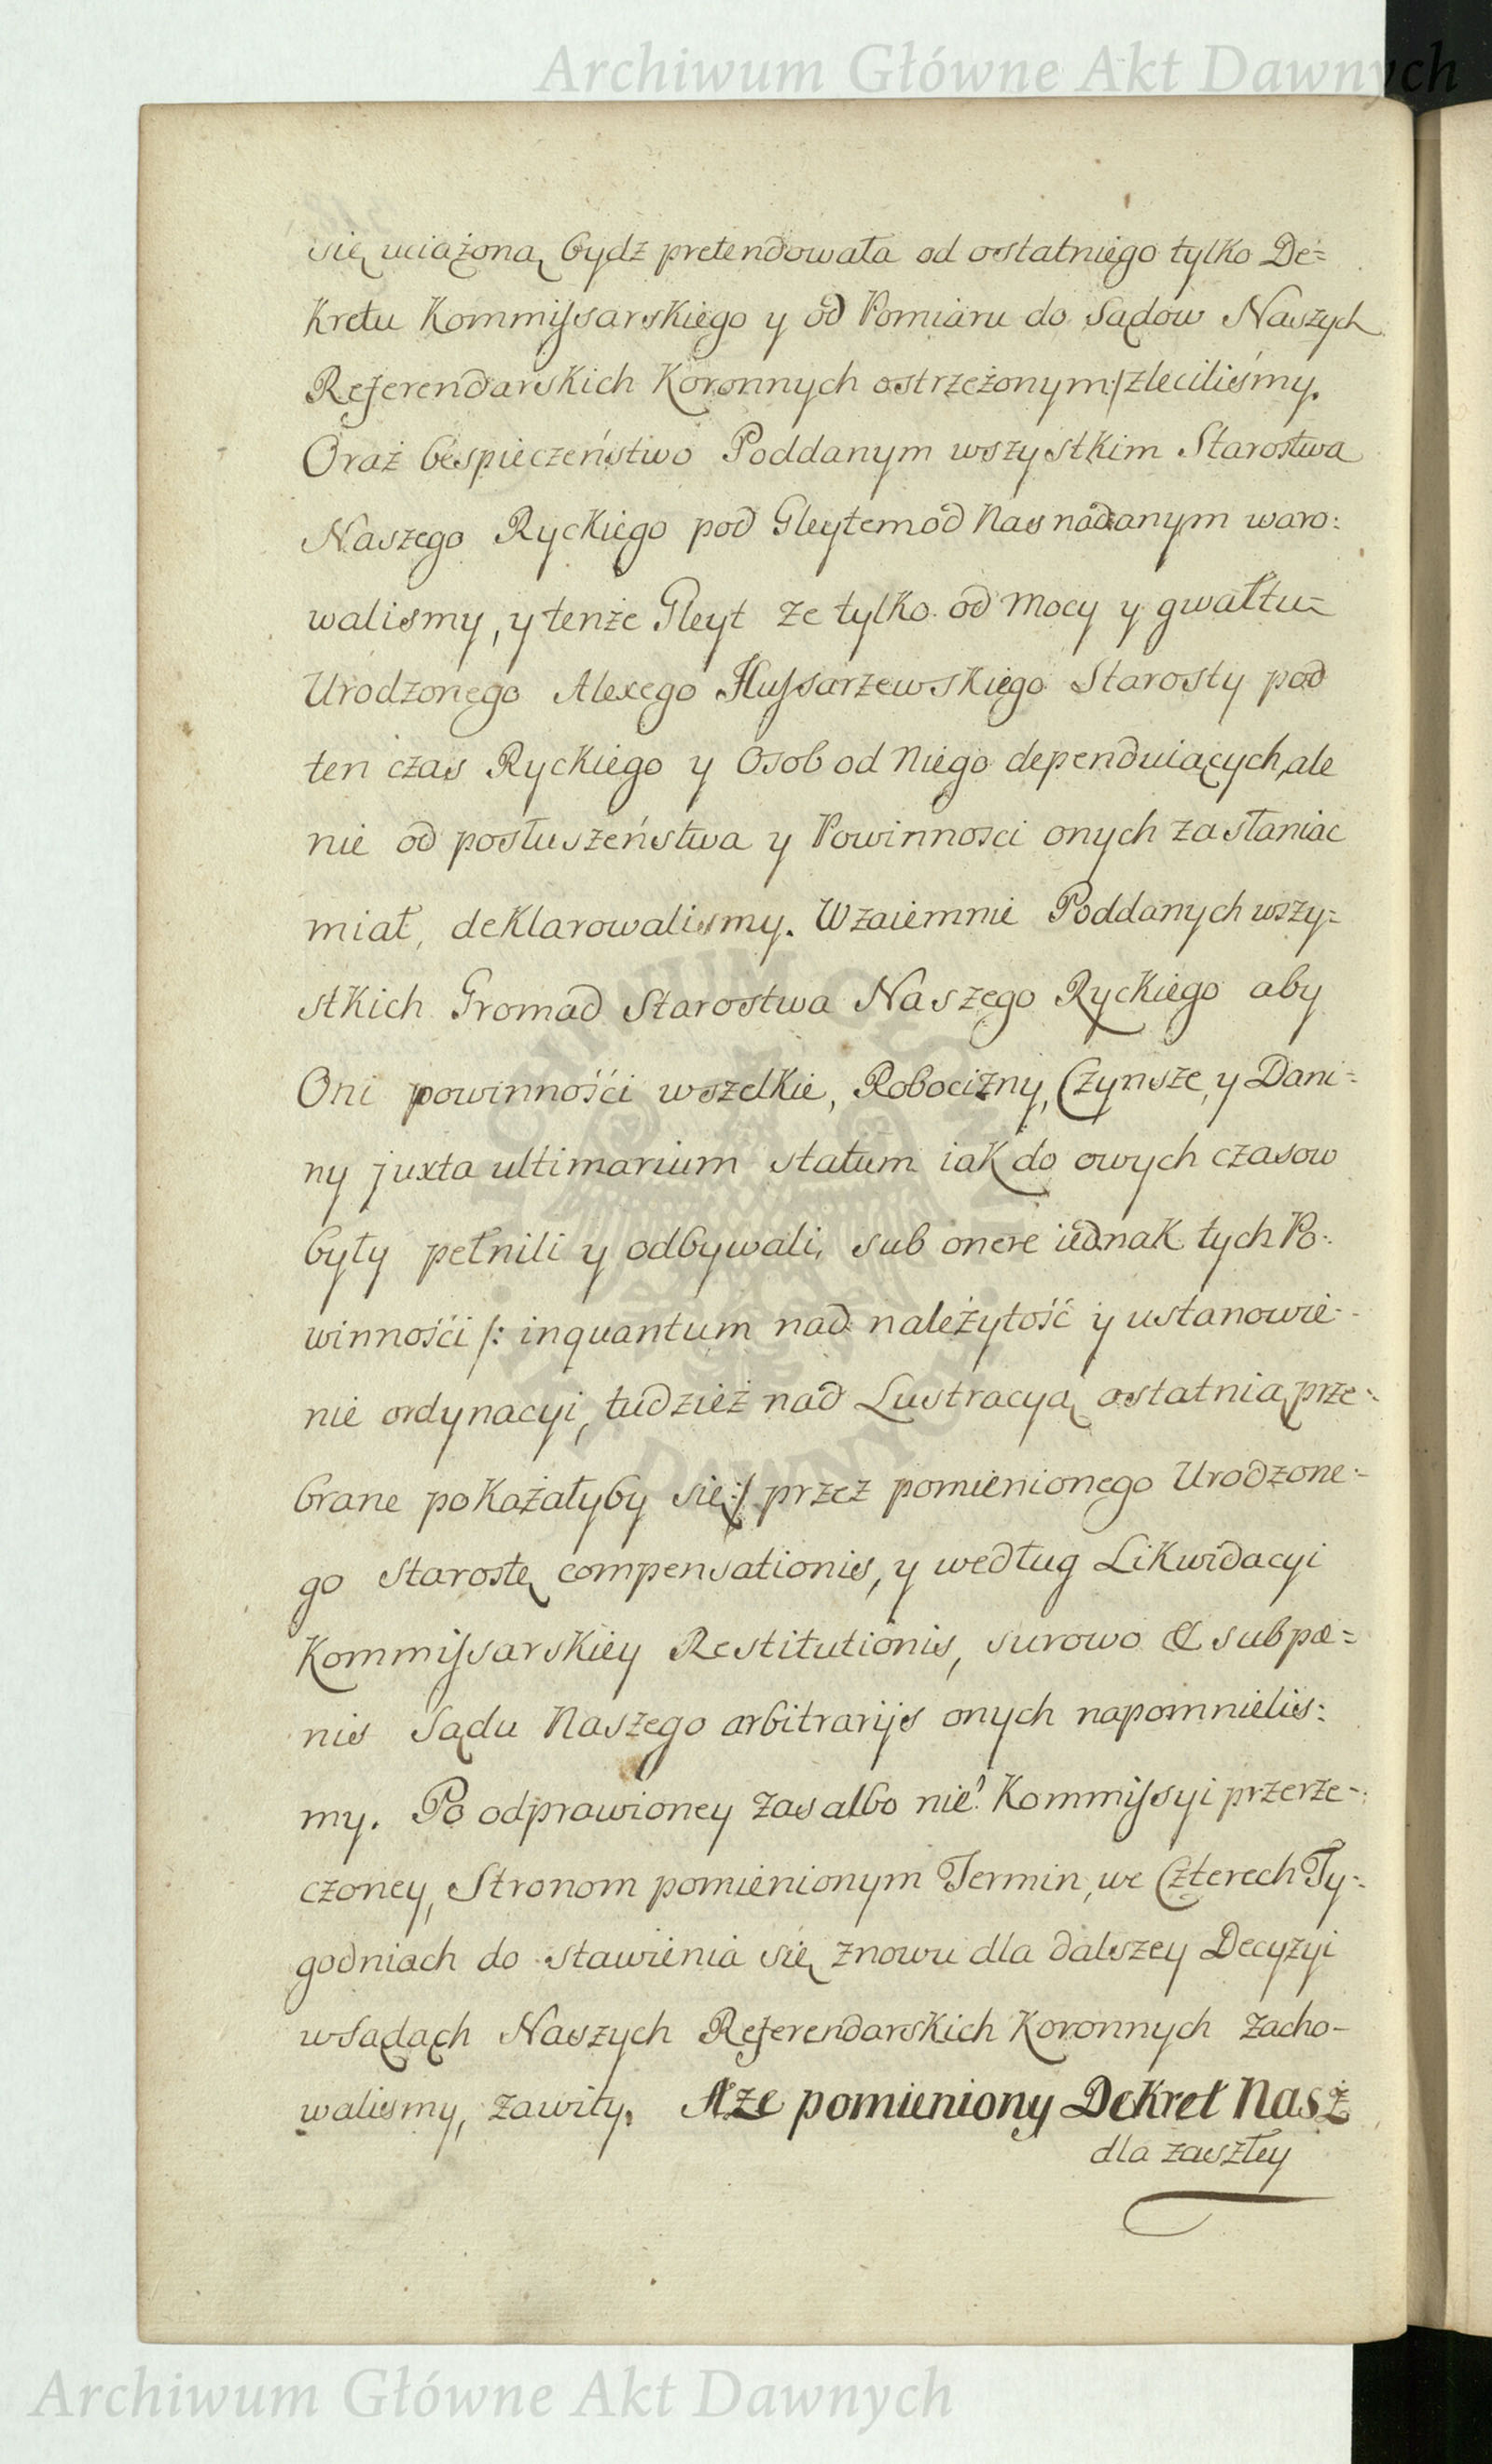 Archiwum Główne Akt Dawnych
się uciążoną bydź pretendowała od ostatniego tylko De=
kretu Kommissarskiego y od Pomiaru do Sądow Naszych
Referendarskich Koronnych ostrzeżonym:/ zleciliśmy.
Oraż bespieczeństwo Poddanym wszystkim Starostwa
Naszego Ryckiego pod Gleytem od Nas nadanym waro:
walismy, y tenże Gleyt ze tylko od Mocy y gwałtu=
Urodzonego Alexego Hussarzewskiego Starosty pod
ten czas Ryckiego y Osob od Niego dependuiących, ale
nie od posłuszeństwa y Powinnosci onych zasłaniac
miał, deklarowalismy. Wzaiemnie Poddanych wszy=
stkich Gromad Starostwa Naszego Ryckiego aby
Oni powinnośći wszelkie, Robocizny, Czynsze, y Dani=
ny juxta ultimarium statum iak do owych czasow
były pełnili y odbywali, sub onere iednak tych Po:
winnośći /: inquantum nad należytość y ustanowie-
nie ordynacyi, tudzież nad Lustracyą ostatnią prze:
brane pokażałyby się:/ przez pomienionego Urodzone:
go Starostę compensationis, y według Likwidacyi
Kommissarskiey Restitutionis, surowo & sub pæ=
nis Sądu Naszego arbitrarijs onych napomnielis:
my. Po odprawioney zas albo nie! Kommissyi przerze-
czoney, Stronom pomienionym Termin, we Czterech Ty:
godniach do stawienia się znowu dla dalszey Decyzyi
w Sądach Naszych Referendarskich Koronnych zacho-
walismy, zawity. Aze pomieniony Dekret Nasż
dla zaszłey
Archiwum Główne Akt Dawnych